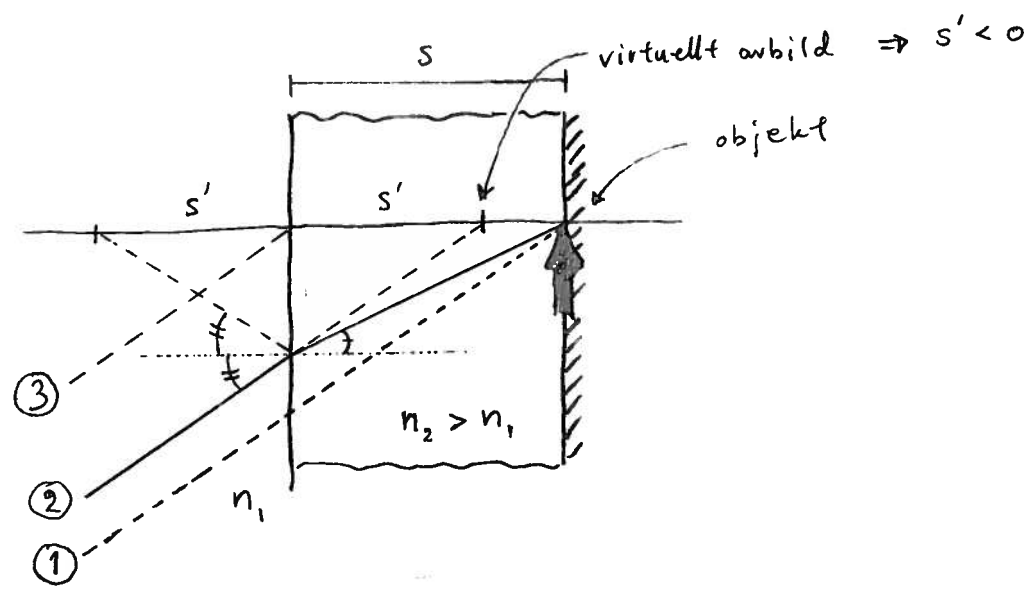 s
virtuellt avbild ⇒ s' < 0
objekt
s'
s'
③
n₂ > n₁
②
n₁
①